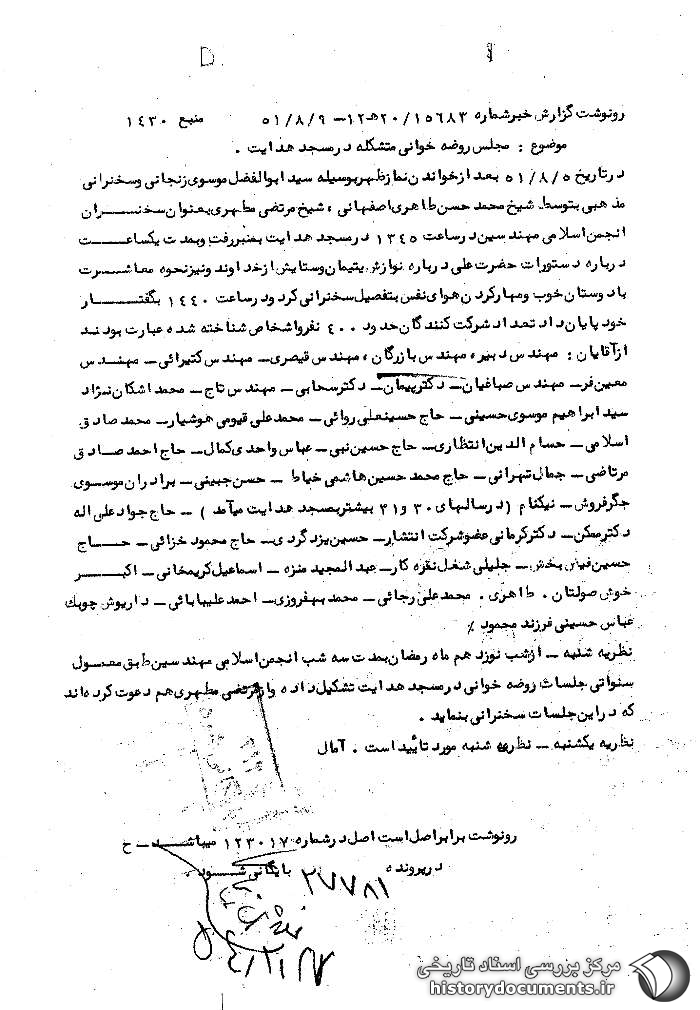 رونوشت گزارش خبر شماره ۱۵۶۸۳/۲۰ هـ ۱۲ – ۵۱/۸/۹ منبع ۱۴۳۰
موضوع : مجلس روضه خوانی متشکله در مسجد هدایت .
در تاریخ ۵۱/۸/۵ بعد از خواندن نماز ظهر بوسیله سید ابوالفضل موسوی زنجانی و سخنرانی
مذهبی بتوسط شیخ محمد حسن طاهری اصفهانی ، شیخ مرتضی مطهری بعنوان سخنران
انجمن اسلامی مهندسین در ساعت ۱۳۴۵ در مسجد هدایت بمنبر رفت و بمدت یکساعت
درباره دستورات حضرت علی درباره نوازش یتیمان و ستایش از خداوند و نیز نحوه معاشرت
با دوستان خوب و مهار کردن هوای نفس بتفصیل سخنرانی کرد و در ساعت ۱۴۴۰ بگفتار
خود پایان داد تعداد شرکت کنندگان حدود ۴۰۰ نفر و اشخاص شناخته شده عبارت بودند
از آقایان : مهندس دبیر، مهندس بازرگان، مهندس قیصری – مهندس کتیرائی – مهندس
معین فر – مهندس صباغیان – دکتر پیمان – دکتر سحابی – مهندس تاج – محمد اشکان نژاد
سید ابراهیم موسوی حسینی – حاج حسینعلی روائی – محمد علی قیومی هوشیار – محمد صادق
اسلامی – حسام الدین انتظاری – حاج حسین نبی – عباس واحدی کمال – حاج احمد صادق
مرتاضی – جمال تهرانی – حاج محمد حسین هاشمی خیاط – حسن جبینی – برادران موسوی
جگر فروش – نیکنام (در سالهای ۳۰ و ۴۱ بیشتر بمسجد هدایت میآمد ) – حاج جواد علی اله
دکتر ممکن – دکتر کرمانی عضو شرکت انتشار – حسین یزدگردی – حاج محمود خزائی – حاج
حسین فیاض بخش – جلیلی شغل نقره کار – عبد المجید منزه – اسماعیل کریمخانی – اکبر
خوش صولتان . طاهری . محمد علی رجائی – محمد بهفروزی – احمد علیبابائی – داریوش چوبک
عباس حسینی فرزند محمود ٪
نظریه شنبه – از شب نوزدهم ماه رمضان بمدت سه شب انجمن اسلامی مهندسین طبق معمول
سنواتی جلسات روضه خوانی در مسجد هدایت تشکیل داده و از مرتضی مطهری هم دعوت کرده اند
که در این جلسات سخنرانی بنماید .
نظریه یکشنبه – نظریه شنبه مورد تأیید است . آمال
رونوشت برابر اصل است اصل در شماره ۱۲۳۰۱۷ میباشد – ح
در پرونده ۲۷۷۸۱ بایگانی شود .
مرکز بررسی اسناد تاریخی
historydocuments.ir